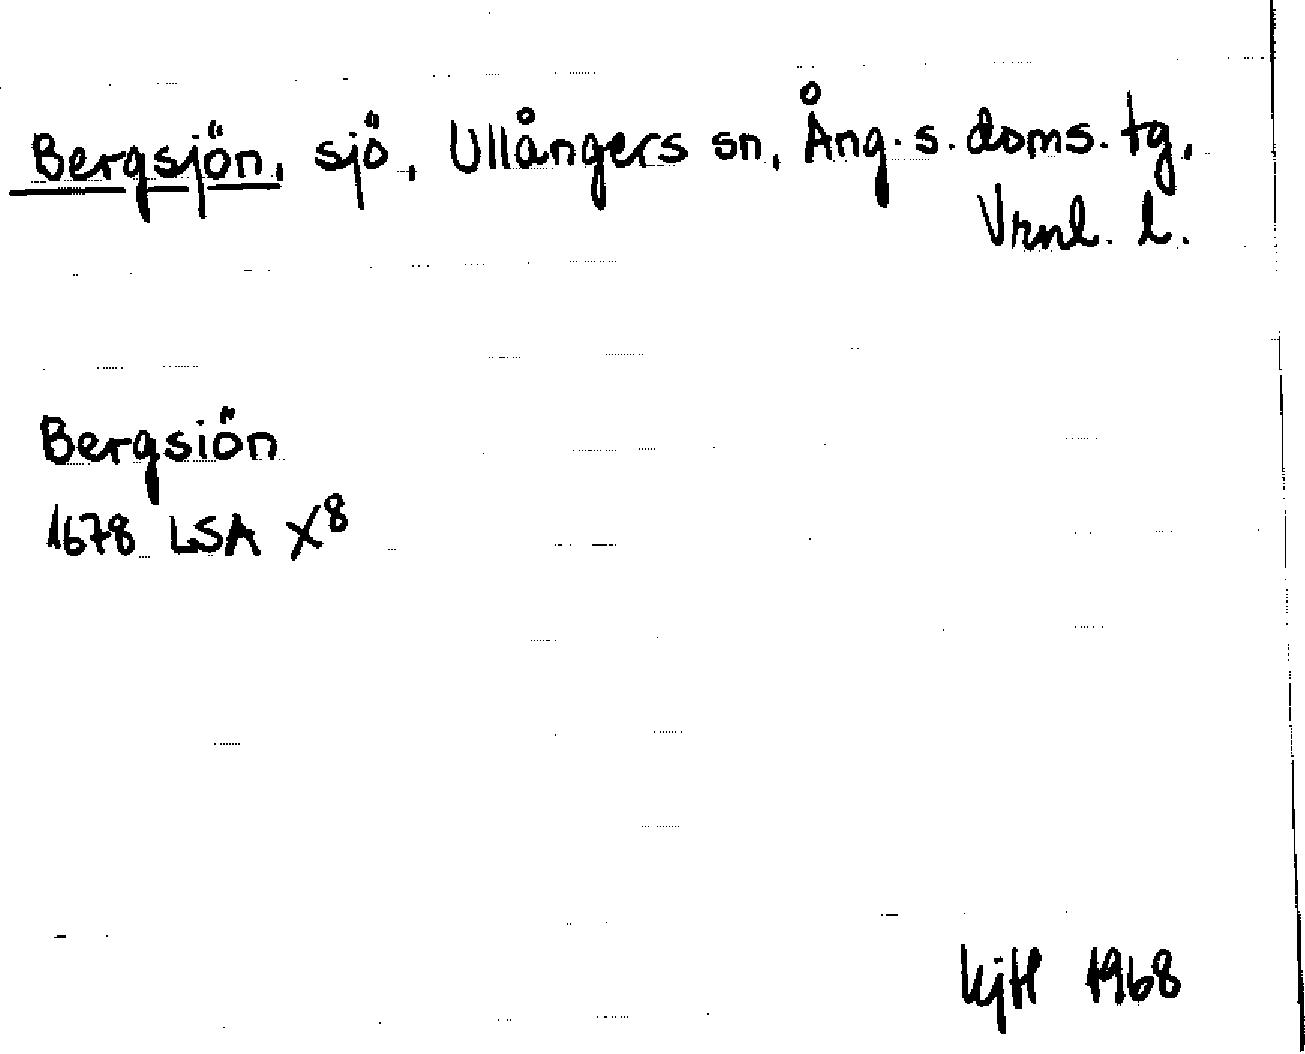 Bergsjön, sjö, Ullångers sn, Ång. s. doms. tg,
Vrnl. l.
Bergsiön
1678 LSA X⁸
KjH 1968